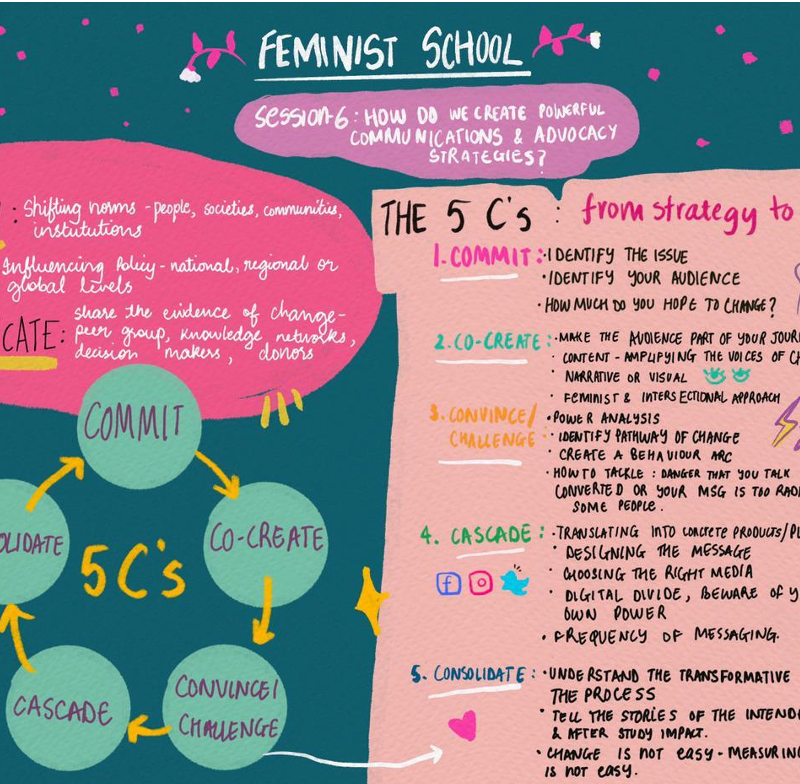 FEMINIST SCHOOL
SESSION-6: HOW DO WE CREATE POWERFUL
COMMUNICATIONS & ADVOCACY
STRATEGIES?
: Shifting norms - people, societies, communities,
institutions
Influencing Policy - national, regional or
global levels
CATE: share the evidence of change-
peer group, knowledge, networks,
decision makers, donors
COMMIT
CO-CREATE
CONVINCE/
CHALLENGE
CASCADE
OLIDATE
5C's
THE 5 C's : from strategy to
1. COMMIT: • IDENTIFY THE ISSUE
• IDENTIFY YOUR AUDIENCE
• HOW MUCH DO YOU HOPE TO CHANGE?
2. CO-CREATE: • MAKE THE AUDIENCE PART OF YOUR JOUR
• CONTENT - AMPLIFYING THE VOICES OF CH
• NARRATIVE OR VISUAL
• FEMINIST & INTERSECTIONAL APPROACH
3. CONVINCE/ • POWER ANALYSIS
CHALLENGE: • IDENTIFY PATHWAY OF CHANGE
• CREATE A BEHAVIOUR ARC
• HOW TO TACKLE : DANGER THAT YOU TALK
CONVERTED OR YOUR MSG IS TOO RAD
SOME PEOPLE.
4. CASCADE: • TRANSLATING INTO CONCRETE PRODUCTS/PL
• DESIGNING THE MESSAGE
• CHOOSING THE RIGHT MEDIA
• DIGITAL DIVIDE, BEWARE OF Y
OWN POWER
• FREQUENCY OF MESSAGING.
5. CONSOLIDATE: • UNDERSTAND THE TRANSFORMATIVE
THE PROCESS
• TELL THE STORIES OF THE INTEND
& AFTER STUDY IMPACT.
• CHANGE IS NOT EASY - MEASURING
IS NOT EASY.